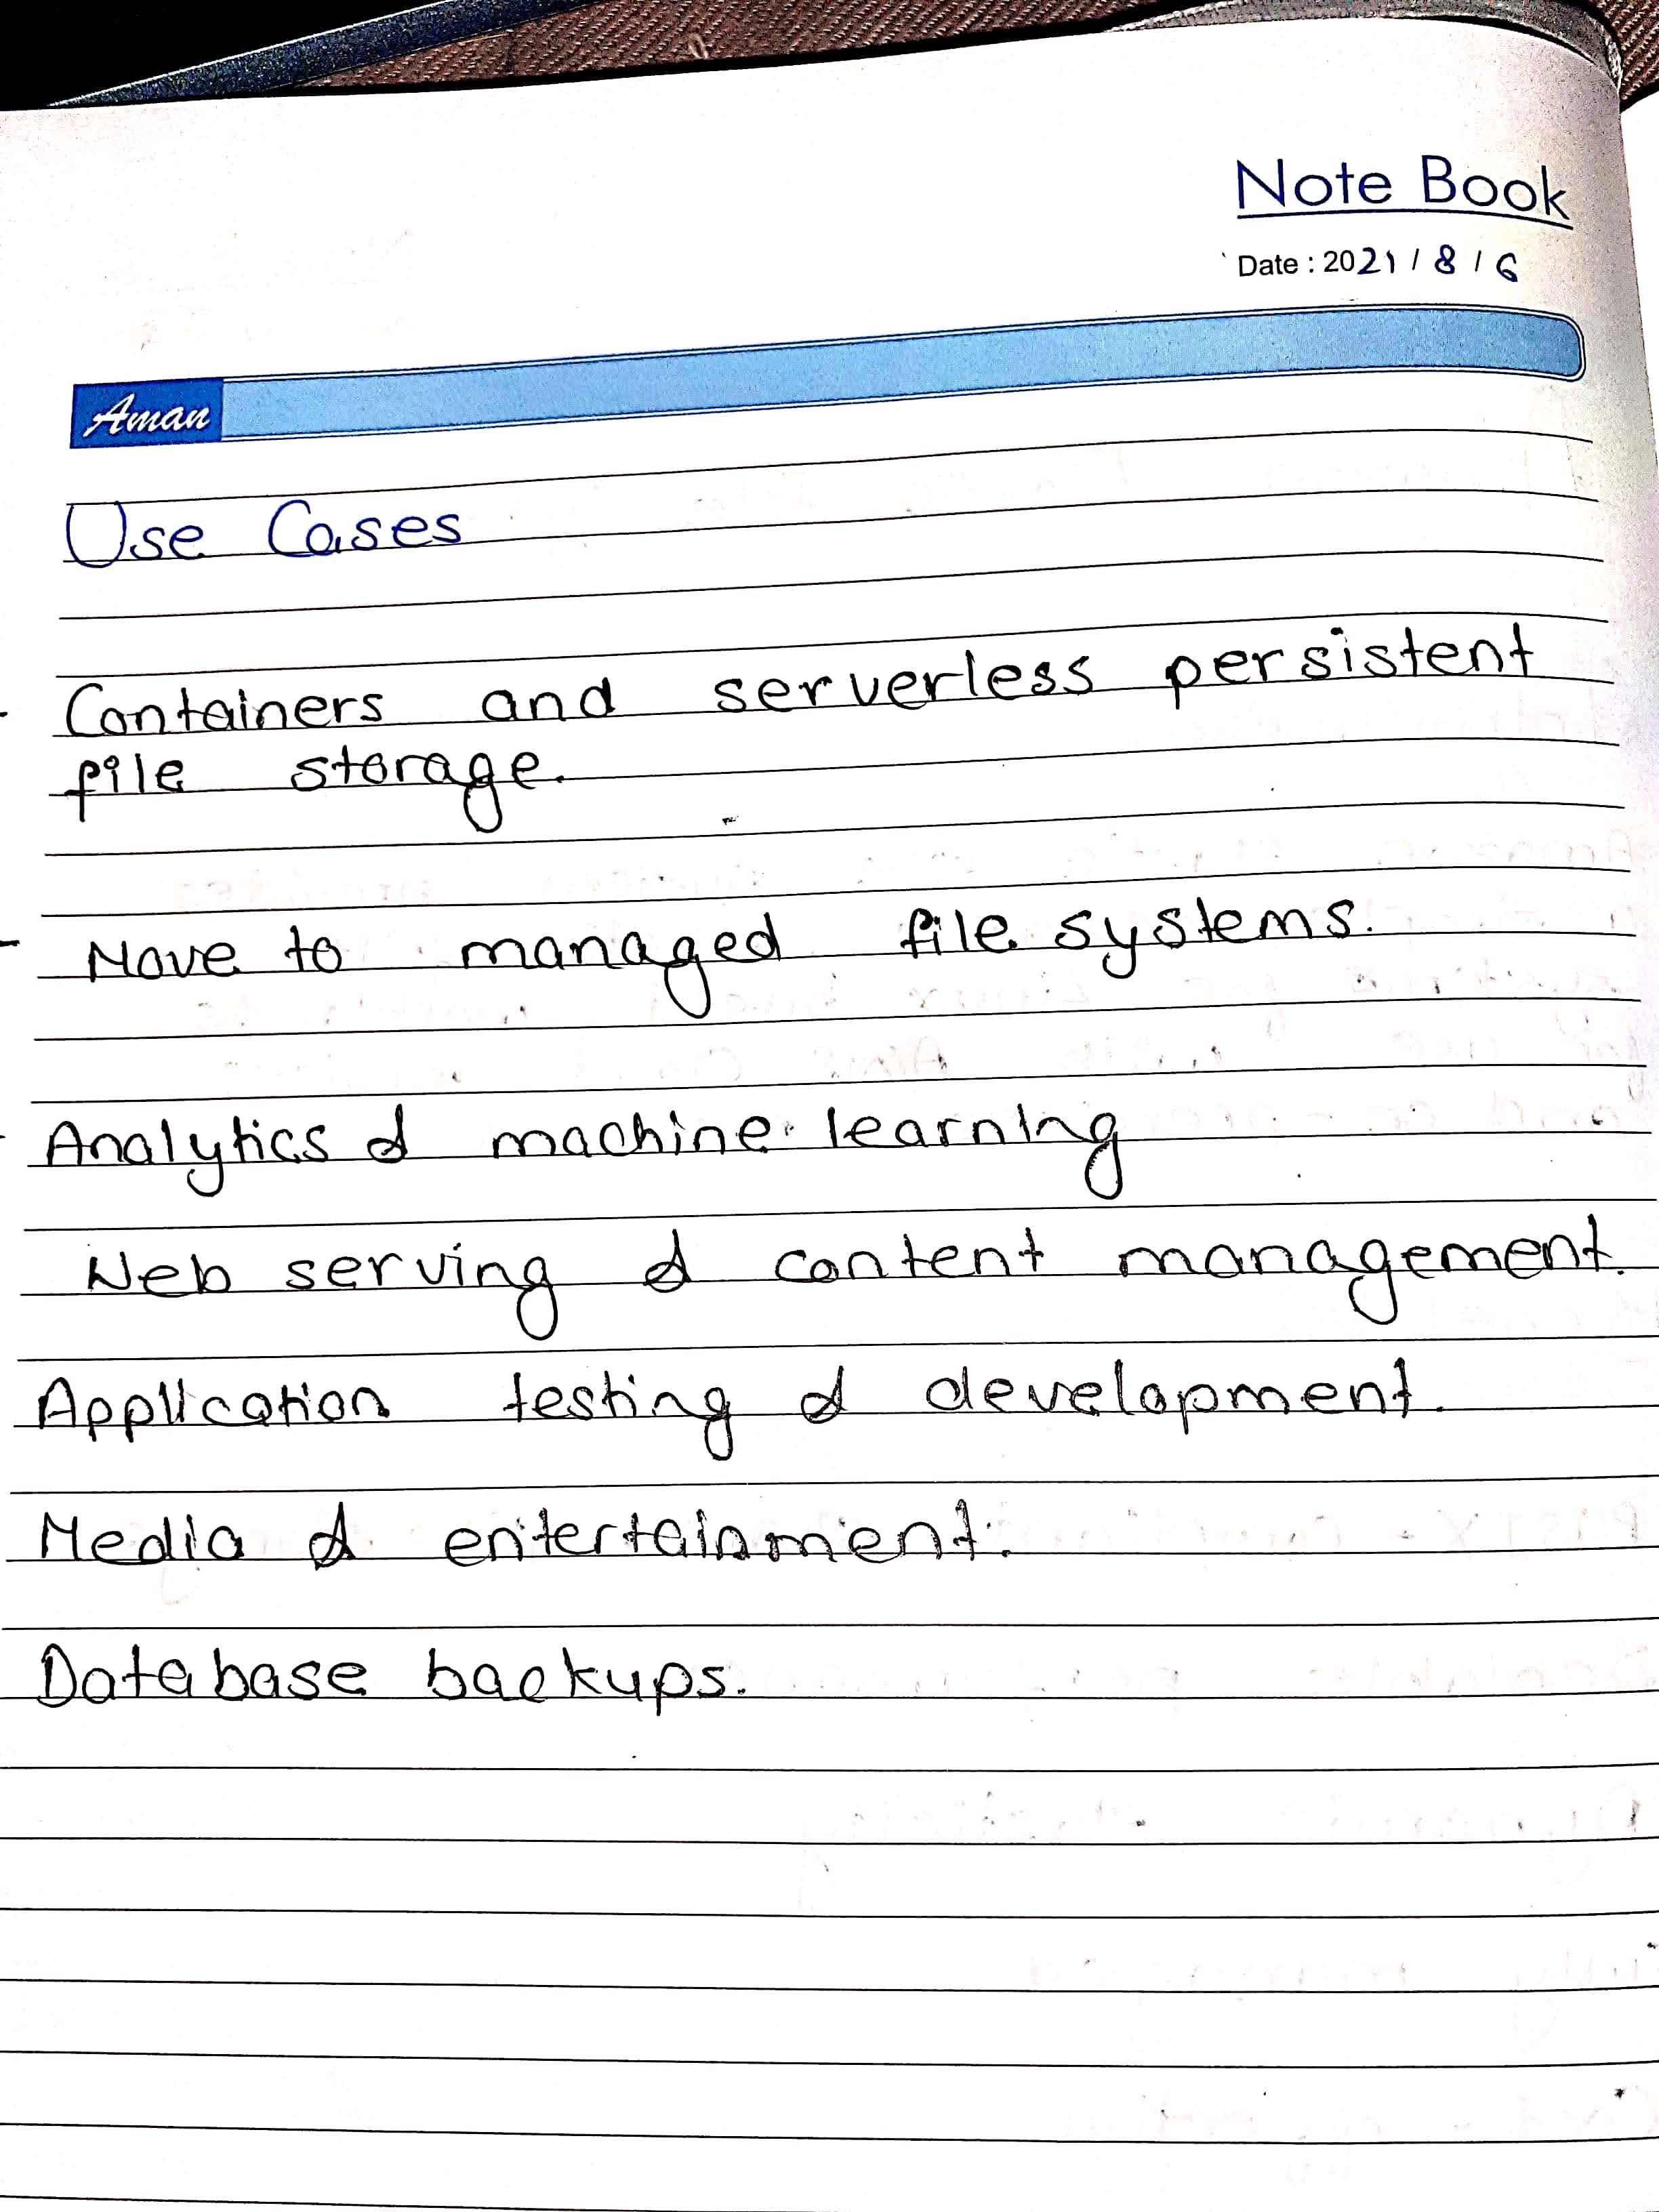 Note Book
Date : 2021 / 8 / 6
Aman
Use Cases
- Containers and serverless persistent
file storage.
- Move to managed file systems.
- Analytics & machine learning
Web serving & content management.
Application testing & development.
Media & entertainment.
Database backups.